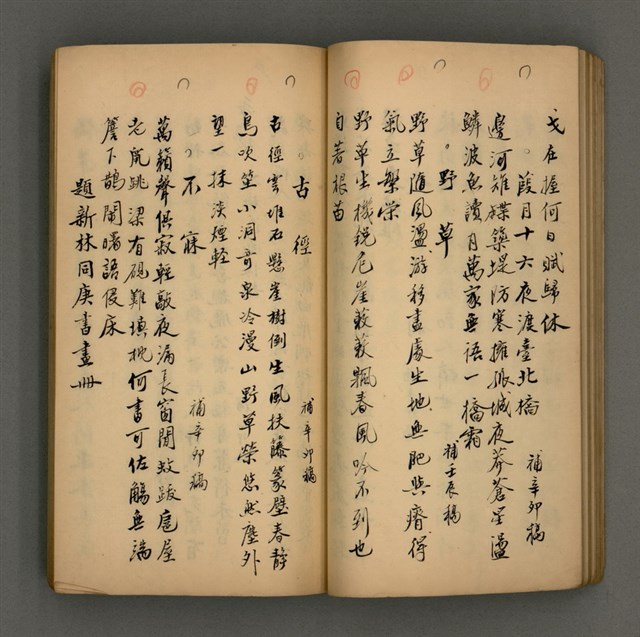 戈在握何日賦歸休
。葭月十六夜渡臺北橋 補辛卯稿
邊河雉堞築堤防寒擁孤城夜莽蒼星盪
鱗波魚讀月萬家無語一橋霜
。野草 補壬辰稿
野草隨風盪游移盡處生地無肥與瘠得
氣立繁榮
野草生機銳危崖蔌蔌飄春風吟不到也
自著根苗
古徑 補辛卯稿
古徑雲堆石懸崖樹倒生風扶藤篆壁春靜
鳥吹笙小洞奇泉冷漫山野草榮悠然塵外
望一抹淡煙輕
不寐 補辛卯稿
萬籟聲俱寂輕敲夜漏長窗閒蚊跋扈屋
老鼠跳梁有硯難填枕何書可佐觴無端
簷下鵲鬧曙語侵床
題新林同庚書畫冊